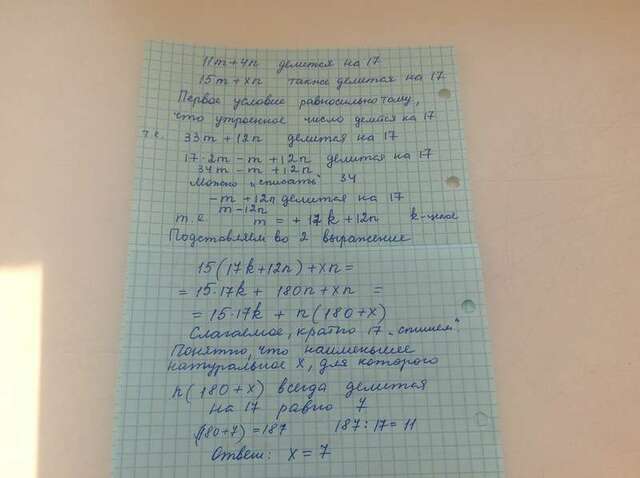 11m + 4n делится на 17
15m + xn также делится на 17
Первое условие равносильно тому,
что утроенное число делится на 17
т.е. 33m + 12n делится на 17
17·2m - m + 12n делится на 17
34m - m + 12n
Можно "списать" 34
-m + 12n делится на 17
m - 12n
т.е. m = + 17k + 12n k-целое
Подставляем во 2 выражение
15(17k + 12n) + xn =
= 15·17k + 180n + xn =
= 15·17k + n(180 + x)
Слагаемое, кратно 17 "спишем".
Понятно, что наименьшее
натуральное x, для которого
n(180 + x) всегда делится
на 17 равно 7
(180 + 7) = 187 187 : 17 = 11
Ответ: x = 7